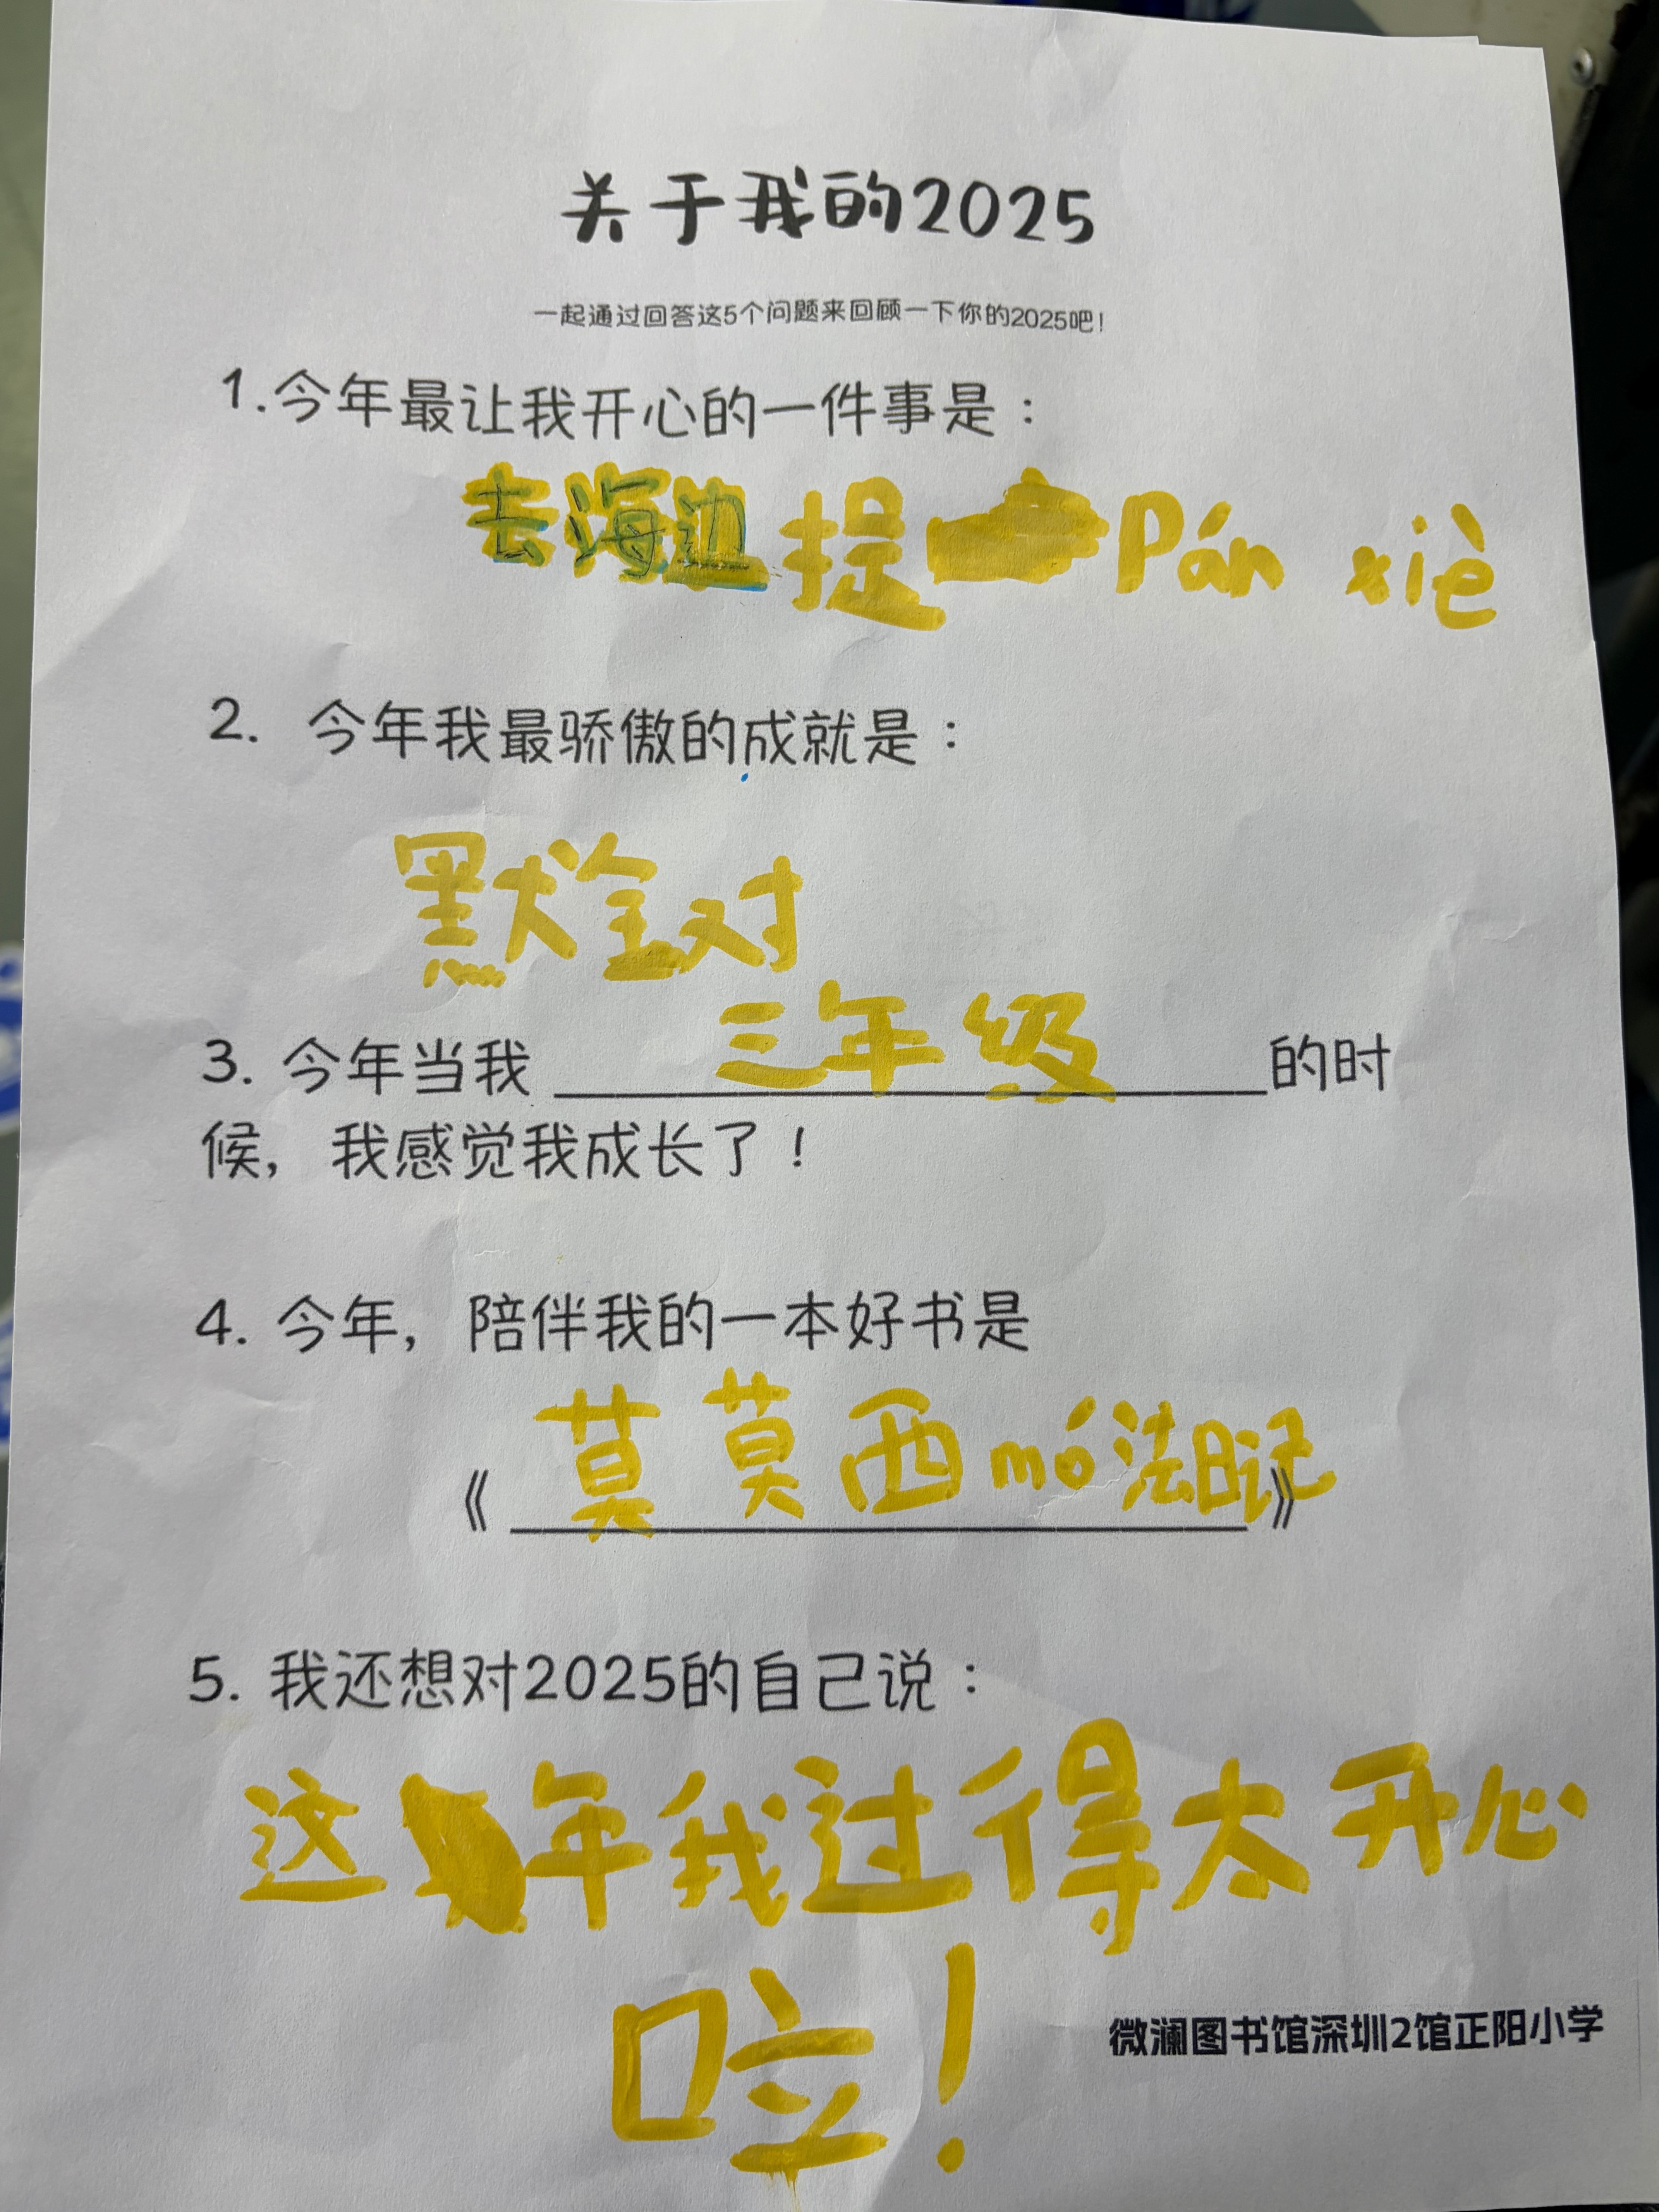 关于我的2025
一起通过回答这5个问题来回顾一下你的2025吧！
1.今年最让我开心的一件事是：
去海边捉 Pán xiè
2. 今年我最骄傲的成就是：
默全对
3. 今年当我 三年级 的时
候，我感觉我成长了！
4. 今年，陪伴我的一本好书是
《莫莫西mó法日记》
5. 我还想对2025的自己说：
这年我过得太开心
啦！
微澜图书馆深圳2馆正阳小学